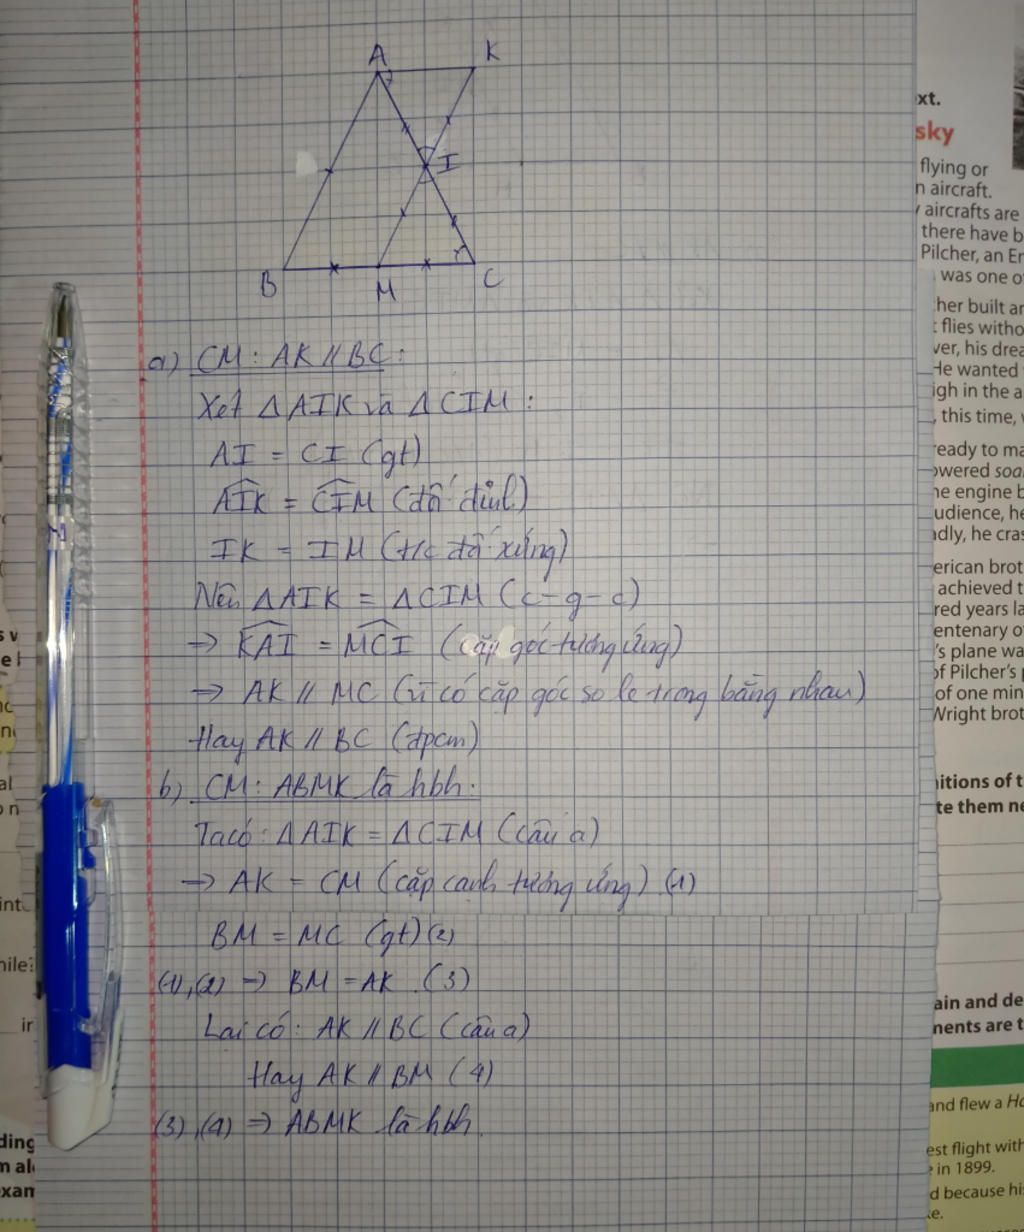 A K
I
B M C
a) CM: AK // BC:
Xét ΔAIK và ΔCIM:
AI = CI (gt)
AIK = CIM (đối đỉnh)
IK = IM (t/c đối xứng)
Nên ΔAIK = ΔCIM (c-g-c)
→ KAI = MCI (cặp góc tương ứng)
→ AK // MC (vì có cặp góc so le trong bằng nhau)
Hay AK // BC (đpcm)
b) CM: ABMK là hbh:
Ta có: ΔAIK = ΔCIM (câu a)
→ AK = CM (cặp cạnh tương ứng) (1)
BM = MC (gt) (2)
(1), (2) → BM = AK. (3)
Lại có: AK // BC (câu a)
Hay AK // BM (4)
(3), (4) ⇒ ABMK là hbh.
xt.
sky
flying or
n aircraft.
aircrafts are
there have b
Pilcher, an Er
was one o
her built ar
flies witho
ver, his drea
He wanted
igh in the a
, this time,
ready to ma
owered soa
ne engine b
udience, he
dly, he cras
erican brot
achieved t
red years la
entenary o
's plane wa
of Pilcher's
of one min
Wright brot
itions of t
te them ne
ain and de
ments are t
and flew a Ho
est flight with
in 1899.
d because his
ke.